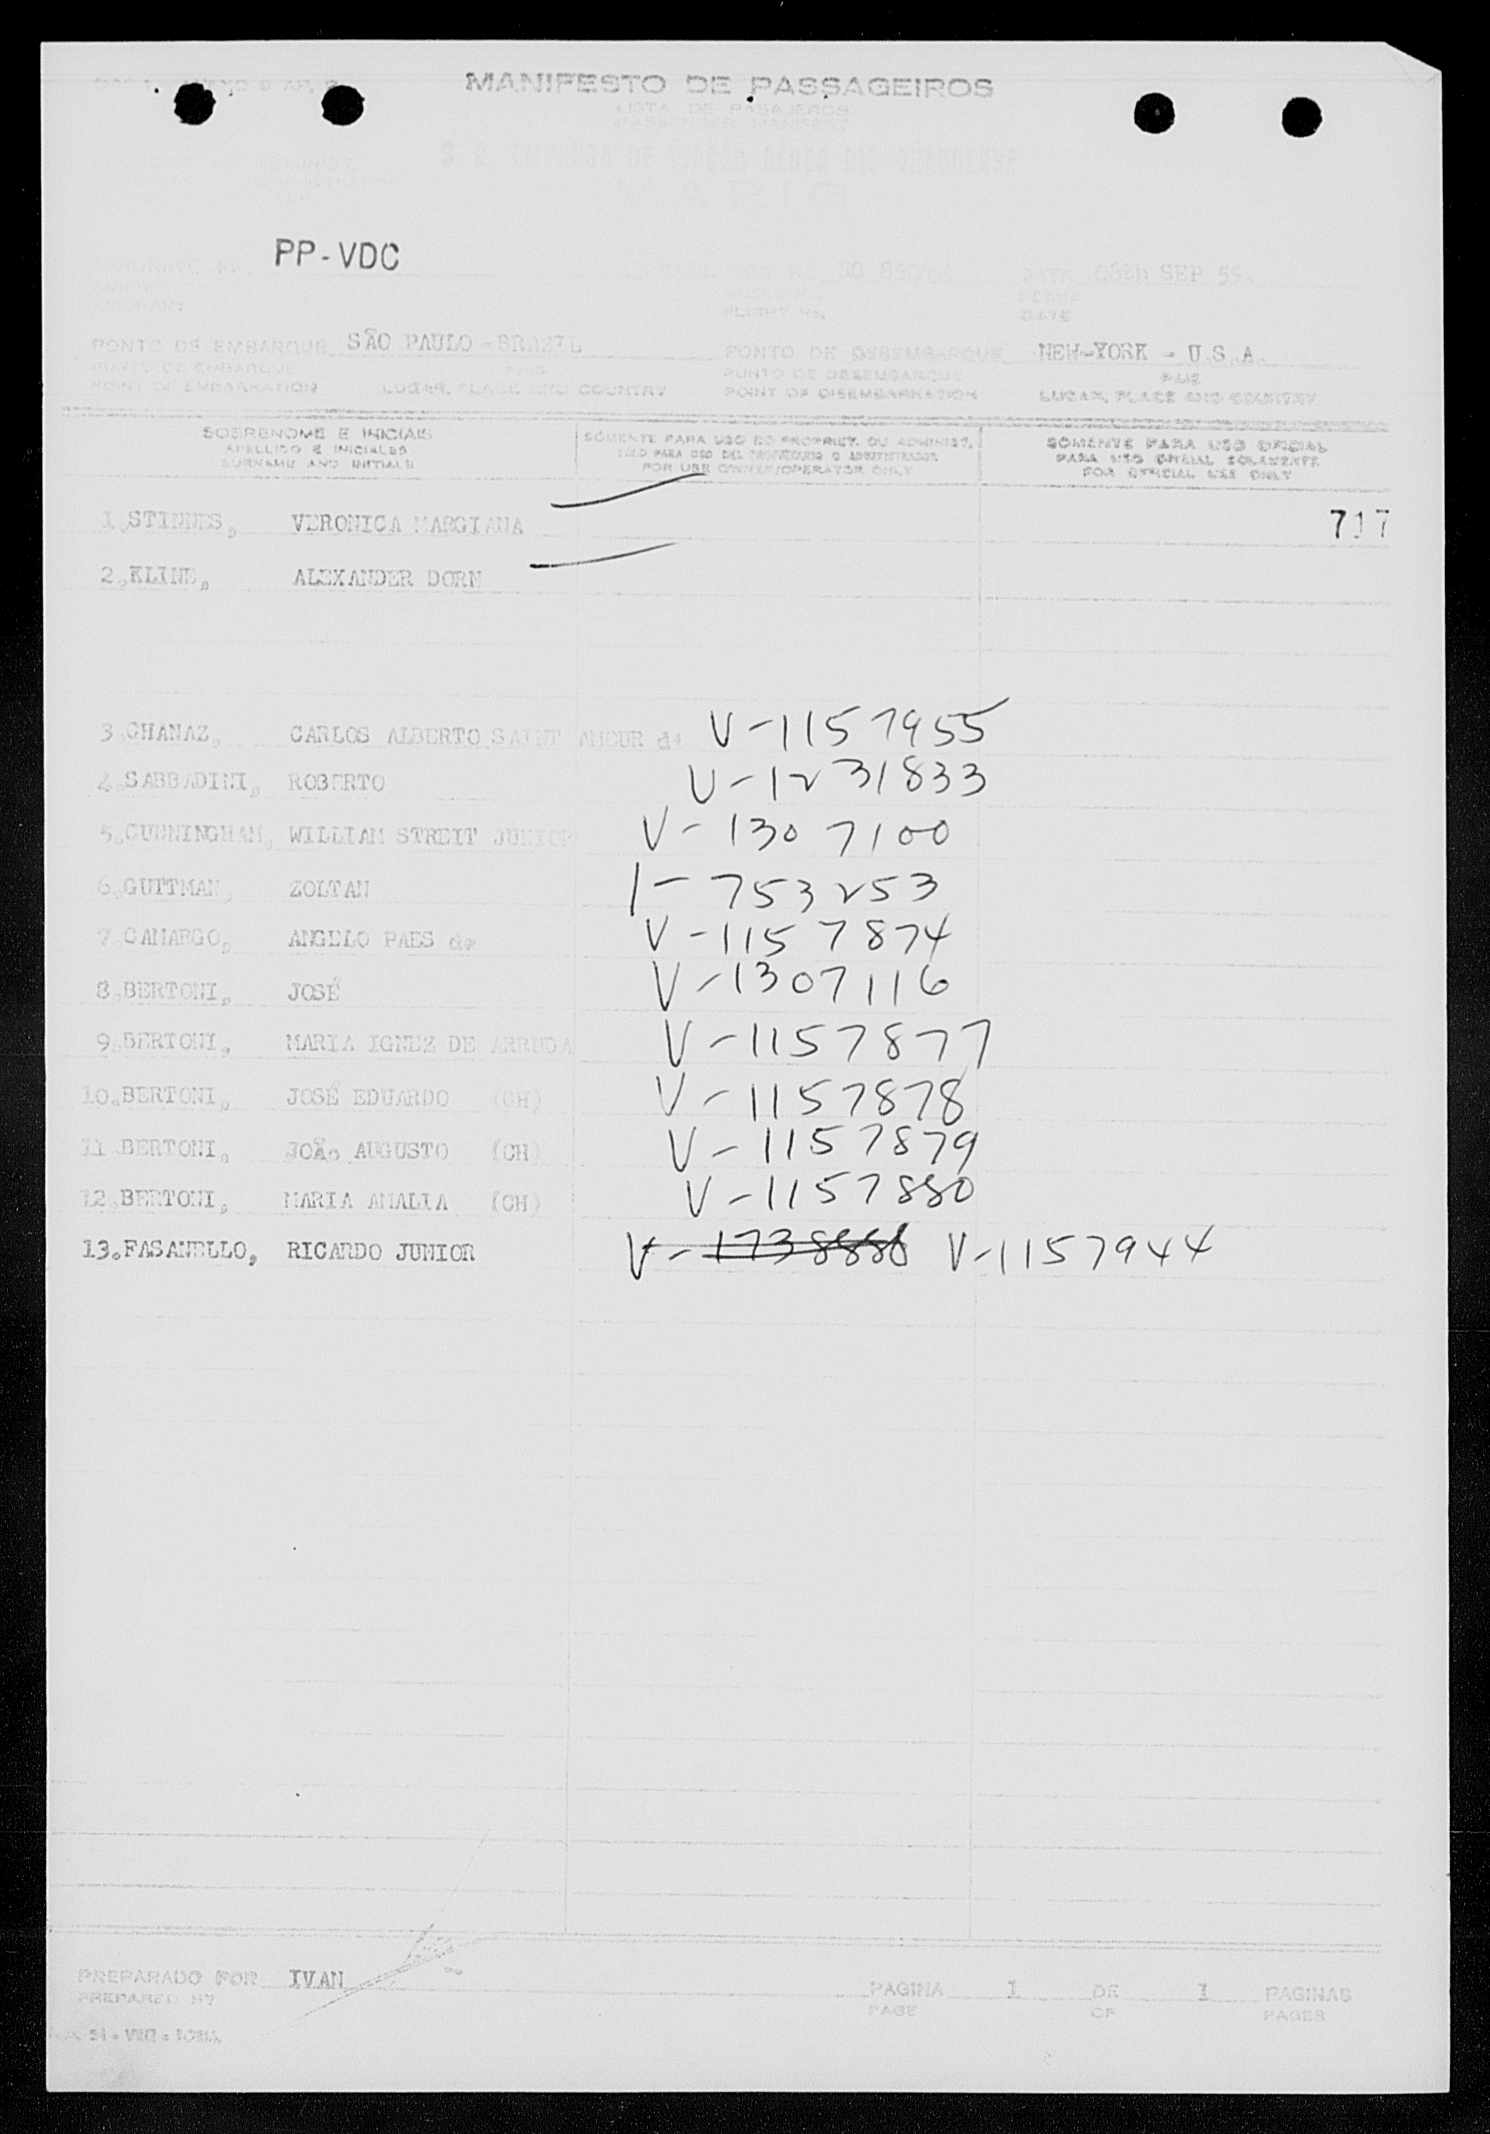 MANIFESTO DE PASSAGEIROS
LISTA DE PASAJEROS
PASSENGER MANIFEST
S. A. EMPRESA DE VIAÇÃO AÉREA RIO GRANDENSE
VARIG
PP-VDC
DATA 08th SEP 55.
FECHA
FLIGHT Nº DATE
PONTO DE EMBARQUE SÃO PAULO - BRAZIL PONTO DE DESEMBARQUE NEW-YORK - U.S.A.
PUNTO DE EMBARQUE PAIS PUNTO DE DESEMBARQUE PAIS
POINT OF EMBARKATION LUGAR, PLACE AND COUNTRY POINT OF DISEMBARKATION LUGAR, PLACE AND COUNTRY
SOBRENOME E INICIAIS SOMENTE PARA USO DO PROPRIET. OU ADMINIST. SOMENTE PARA USO OFICIAL
APELLIDO E INICIALES SOLO PARA USO DEL PROPIETARIO O ADMINISTRADOR PARA USO OFICIAL SOLAMENTE
SURNAME AND INITIALS FOR USE OWNER/OPERATOR ONLY FOR OFFICIAL USE ONLY
1.STINNES, VERONICA MARGIANA 717
2.KLINE, ALEXANDER DORN
3.CHANAZ, CARLOS ALBERTO SAINT AMOUR de V-1157955
4.SABBADINI, ROBERTO V-1231833
5.CUNNINGHAM, WILLIAM STREIT JUNIOR V-1307100
6.GUTTMAN, ZOLTAN 1-753253
7.CAMARGO, ANGELO PAES de V-1157874
8.BERTONI, JOSÉ V-1307116
9.BERTONI, MARIA IGNEZ DE ARRUDA V-1157877
10.BERTONI, JOSÉ EDUARDO (CH) V-1157878
11.BERTONI, JOÃo AUGUSTO (CH) V-1157879
12.BERTONI, MARIA AMALIA (CH) V-1157880
13.FASANELLO, RICARDO JUNIOR V-1738886 V-1157944
PREPARADO POR IVAN PAGINA 1 DE 1 PAGINAS
PREPARED BY PAGE OF PAGES